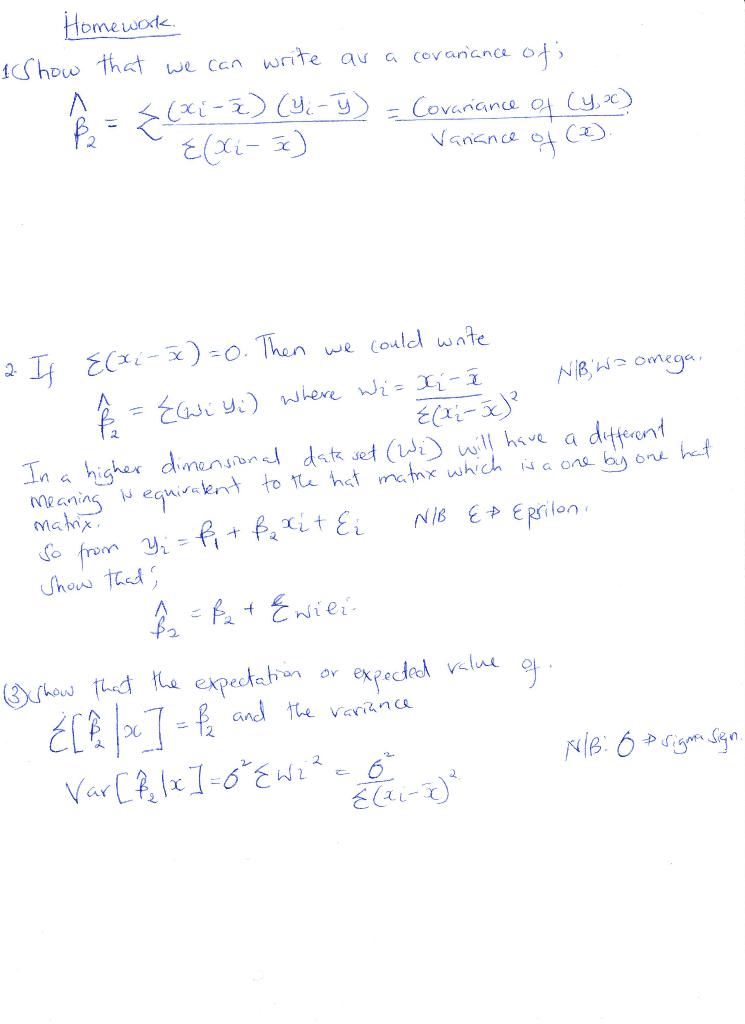 Homework.
1(Show that we can write as a covariance of;
β̂₂ = Σ(xi - x̄)(yi - ȳ) / Σ(xi - x̄) = Covariance of (y,x) / Variance of (x).
2. If Σ(xi - x̄) = 0. Then we could write
β̂₂ = Σ(wi yi) where wi = xi - x̄ / Σ(xi - x̄)² N/B; w = omega.
In a higher dimensional data set (wi) will have a different
meaning is equivalent to the hat matrix which is a one by one hat
matrix.
So from yi = β₁ + β₂xi + εi N/B ε → Epsilon.
Show that;
β̂₂ = β₂ + Σ wi ei.
(3) Show that the expectation or expected value of.
Σ[β̂₂ | x] = β₂ and the variance
Var[β̂₂ | x] = б² Σ wi² = б² / Σ(xi - x̄)² N/B: б → sigma sign.